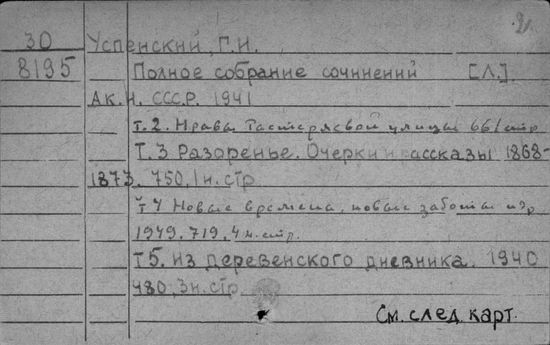 2.
30 Успенский, Г.И.
8195 Полное собрание сочинений [Л.]
Ак.Н. СССР. 1941
Т.2. Нравы Растеряевой улицы 661 стр
Т.3 Разоренье. Очерки и рассказы 1868-
1873. 750, 1 н. стр
Т 4 Новые времена, новые заботы изд
1949. 719, 4 н. стр.
Т 5. Из деревенского дневника. 1940
480, 3 н. стр.
См. след. карт.